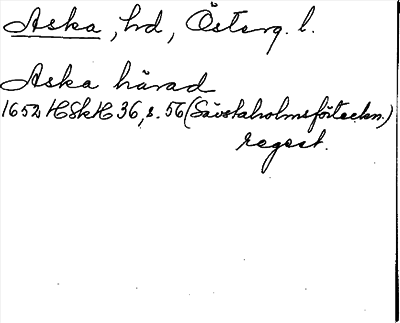 Aska, hd, Österg. l.
Aska härad
1652 HSkH 36, s. 56 (Sävstaholmsförteckn.)
regest.